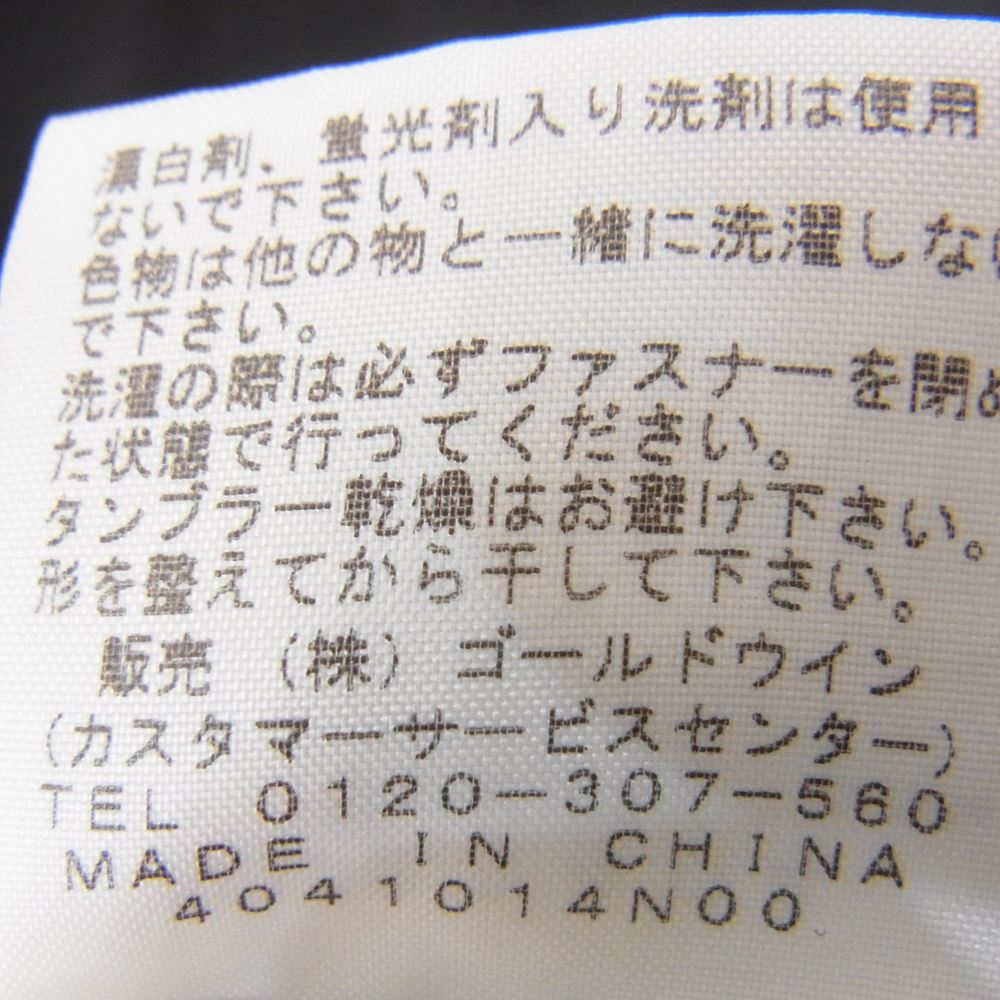 漂白剤、蛍光剤入り洗剤は使用
ないで下さい。
色物は他の物と一緒に洗濯しない
で下さい。
洗濯の際は必ずファスナーを閉め
た状態で行ってください。
タンブラー乾燥はお避け下さい。
形を整えてから干して下さい。
販売 (株) ゴールドウイン
(カスタマーサービスセンター)
TEL 0120-307-560
MADE IN CHINA
4041014N00